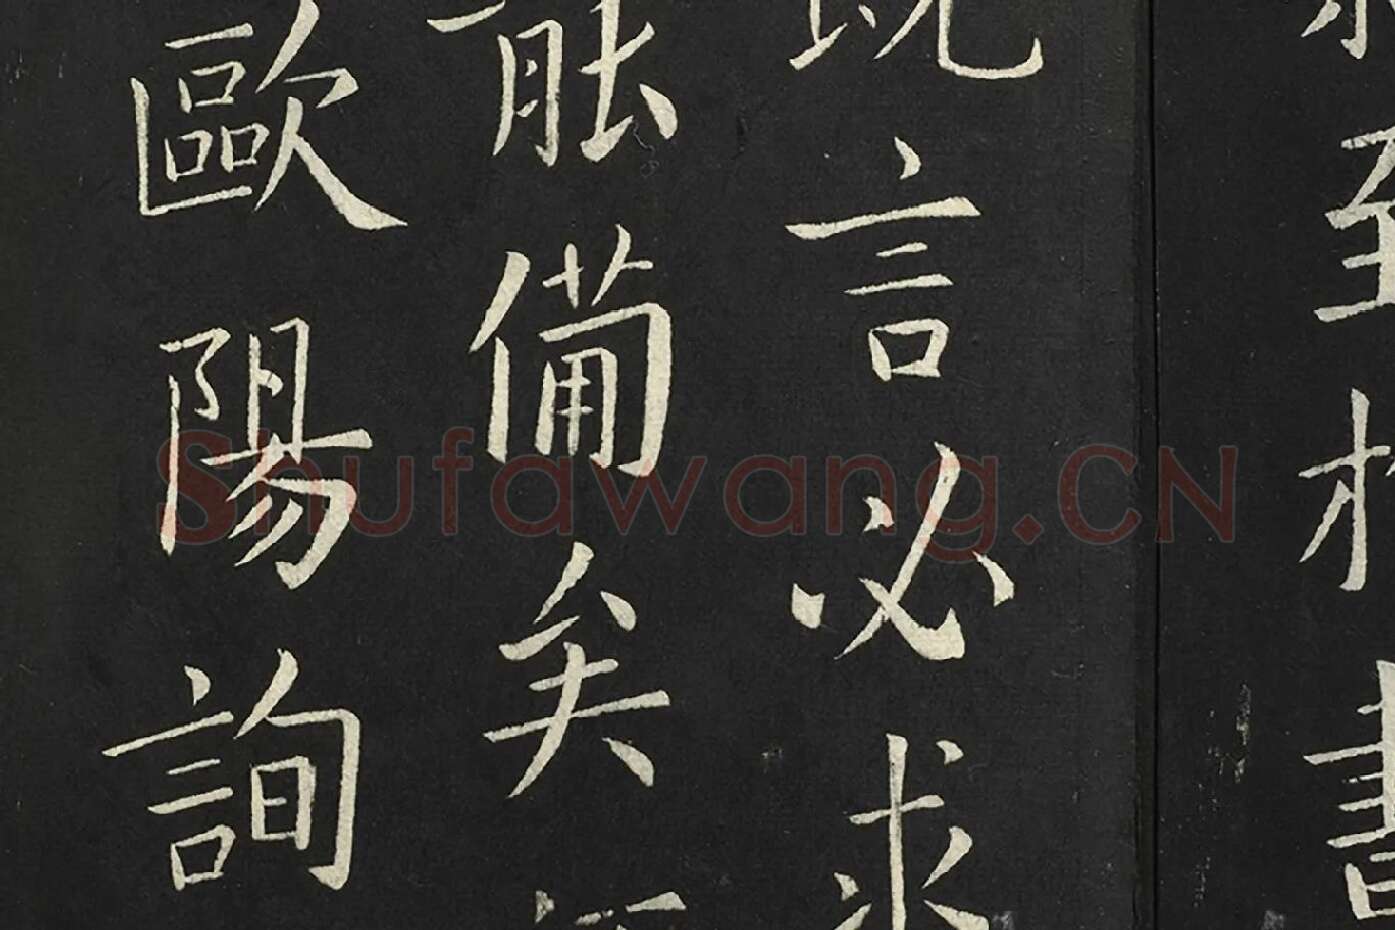 至於書
既言必求
能備矣
歐陽詢
Shufawang.CN